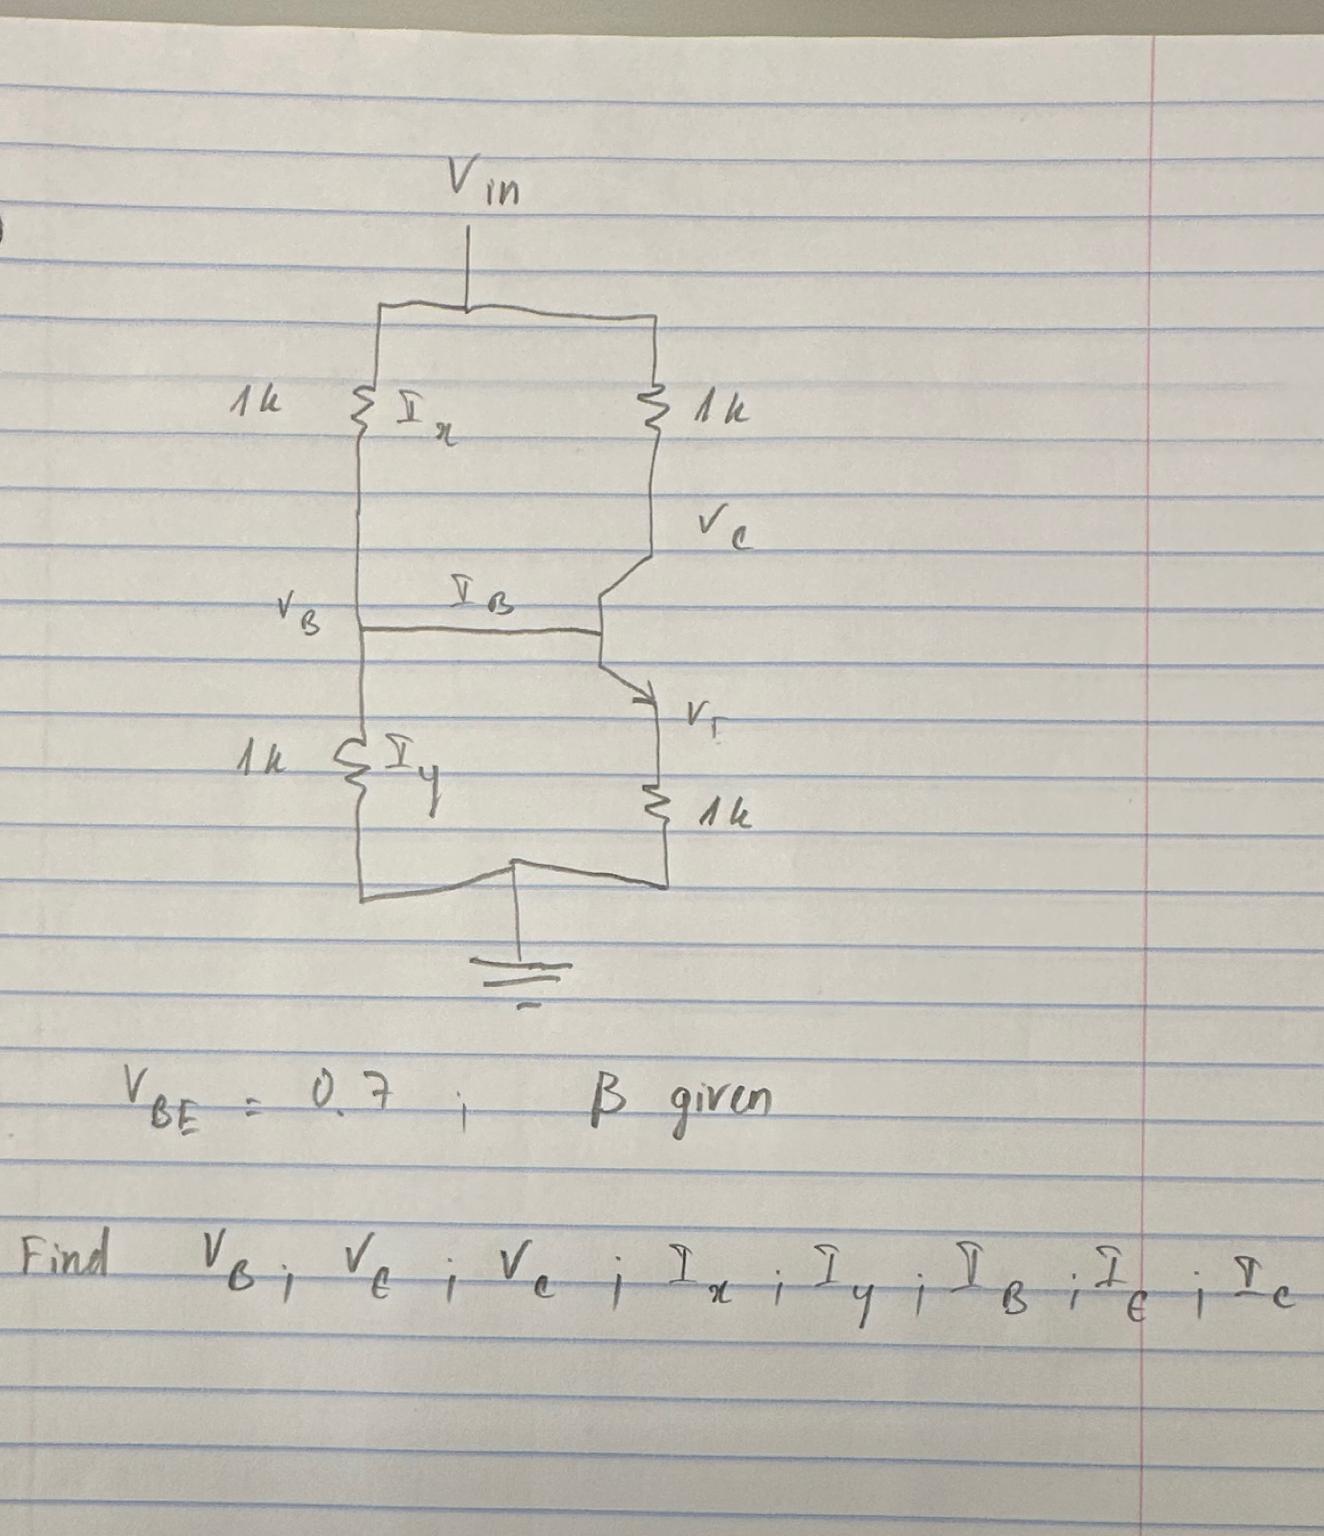 Vin
1k Ix 1k
VC
VB IB
VE
1k Iy
1k
VBE = 0.7 ; β given
Find VB ; VE ; VC ; Ix ; Iy ; IB ; IE ; IC